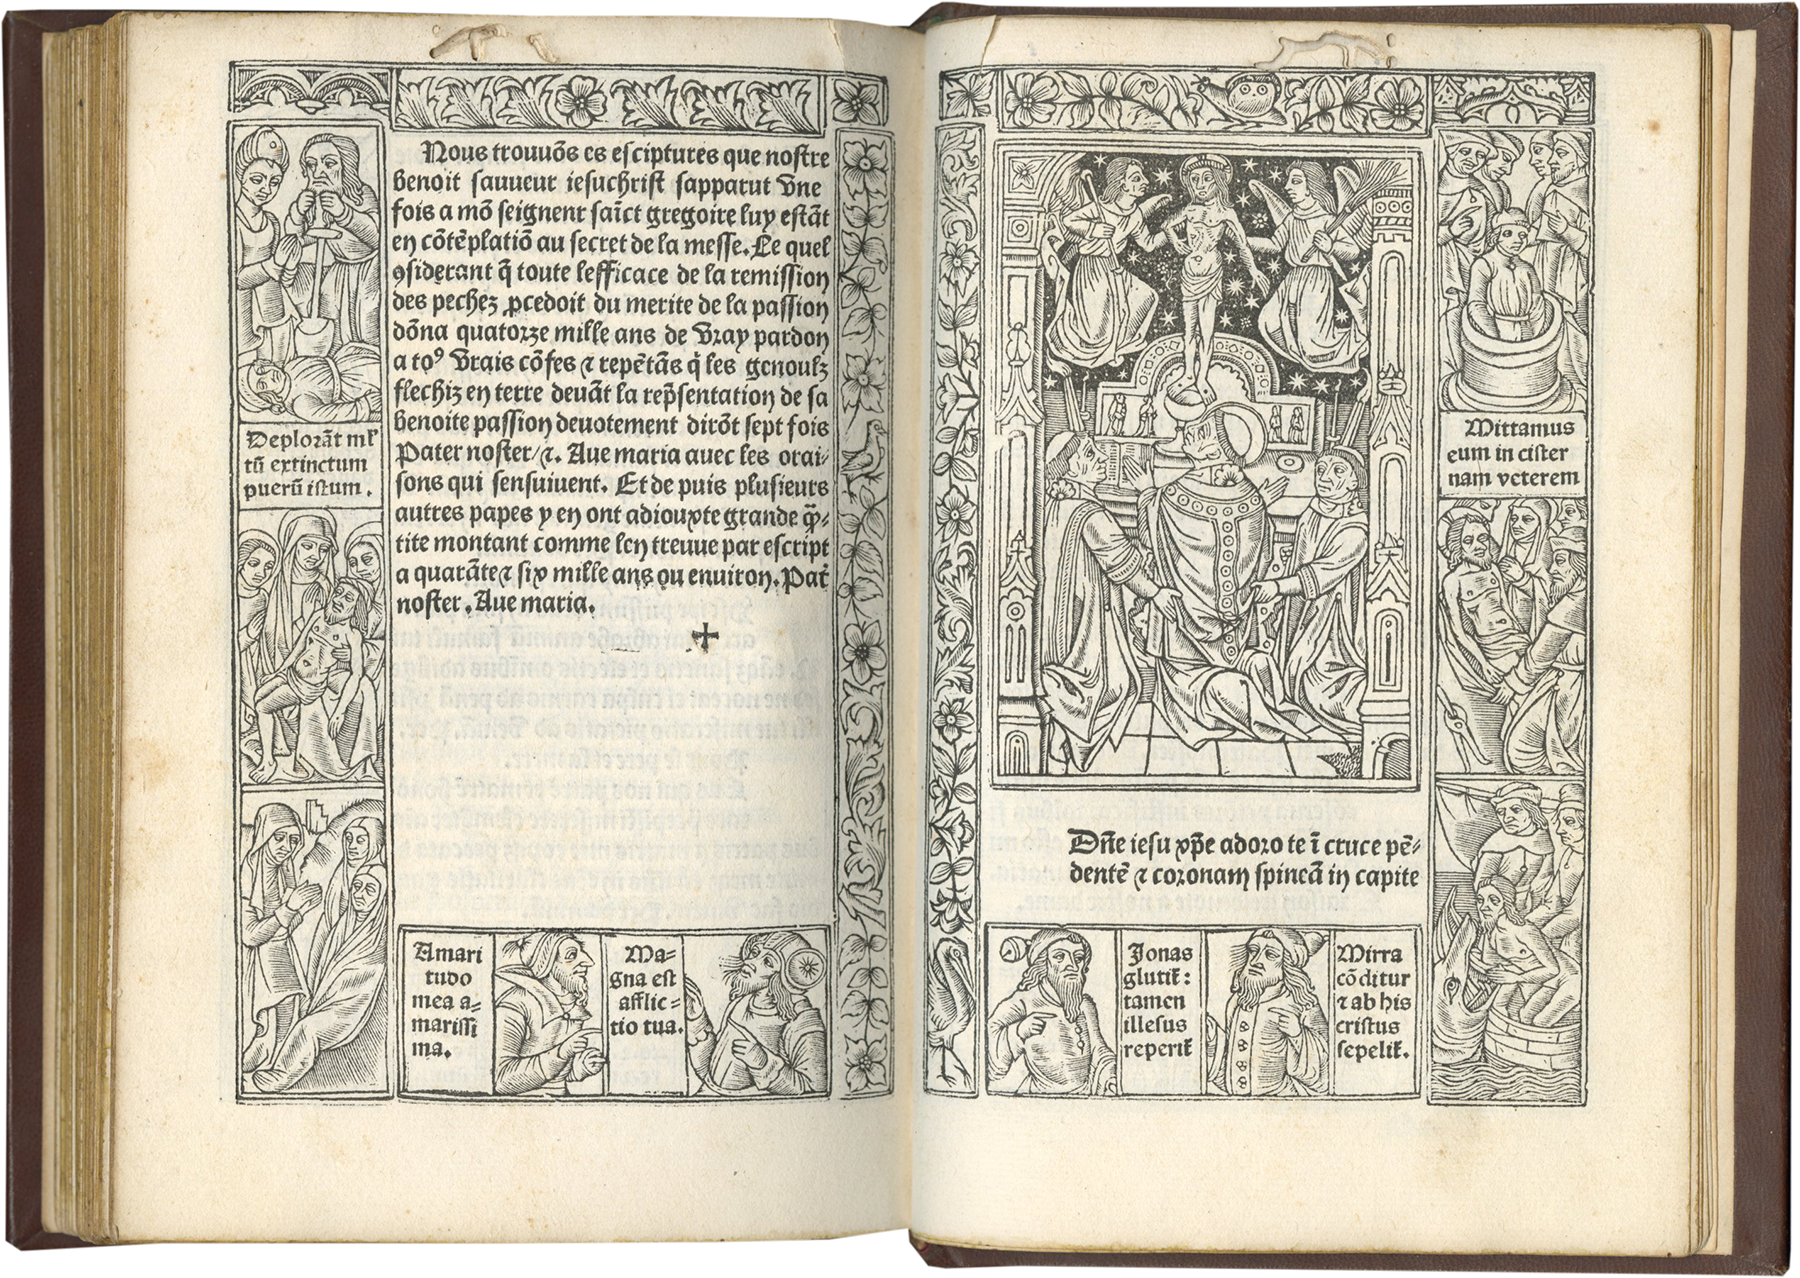 Nous trouuōs es esciptures que nostre
benoit sauueur iesuchrist sapparut vne
fois a mō seignent saīct gregoire luy estāt
en cōtēplatiō au secret de la messe. Le quel
ꝯsiderant q̄ toute lefficace de la remission
des pechez ꝓcedoit du merite de la passion
dōna quatorze mille ans de vray pardon
a toꝰ vrais cōfes ⁊ repētās q̄ les genoulz
flechiz en terre deuāt la rep̄sentation de sa
benoite passion deuotement dirōt sept fois
Pater noster/⁊. Aue maria auec les orai-
sons qui sensuiuent. Et de puis plusieurs
autres papes y en ont adiouxte grande q̄-
tite montant comme len treuue par escript
a quarāte ⁊ six mille ans ou enuiron. Pat̄
noster. Aue maria.
Deplorāt ml̓
tū extinctum
puerū istum.
Amari
tudo
mea a-
marissi
ma.
Ma-
gna est
afflic-
tio tua.
Dn̄e iesu xp̄e adoro te ī cruce pē-
dentē ⁊ coronam spineā in capite
Mittamus
eum in cister
nam veterem
Jonas
glutit̄:
tamen
illesus
reperit̄
Mirra
cōditur
⁊ ab his
cristus
sepelit̄.